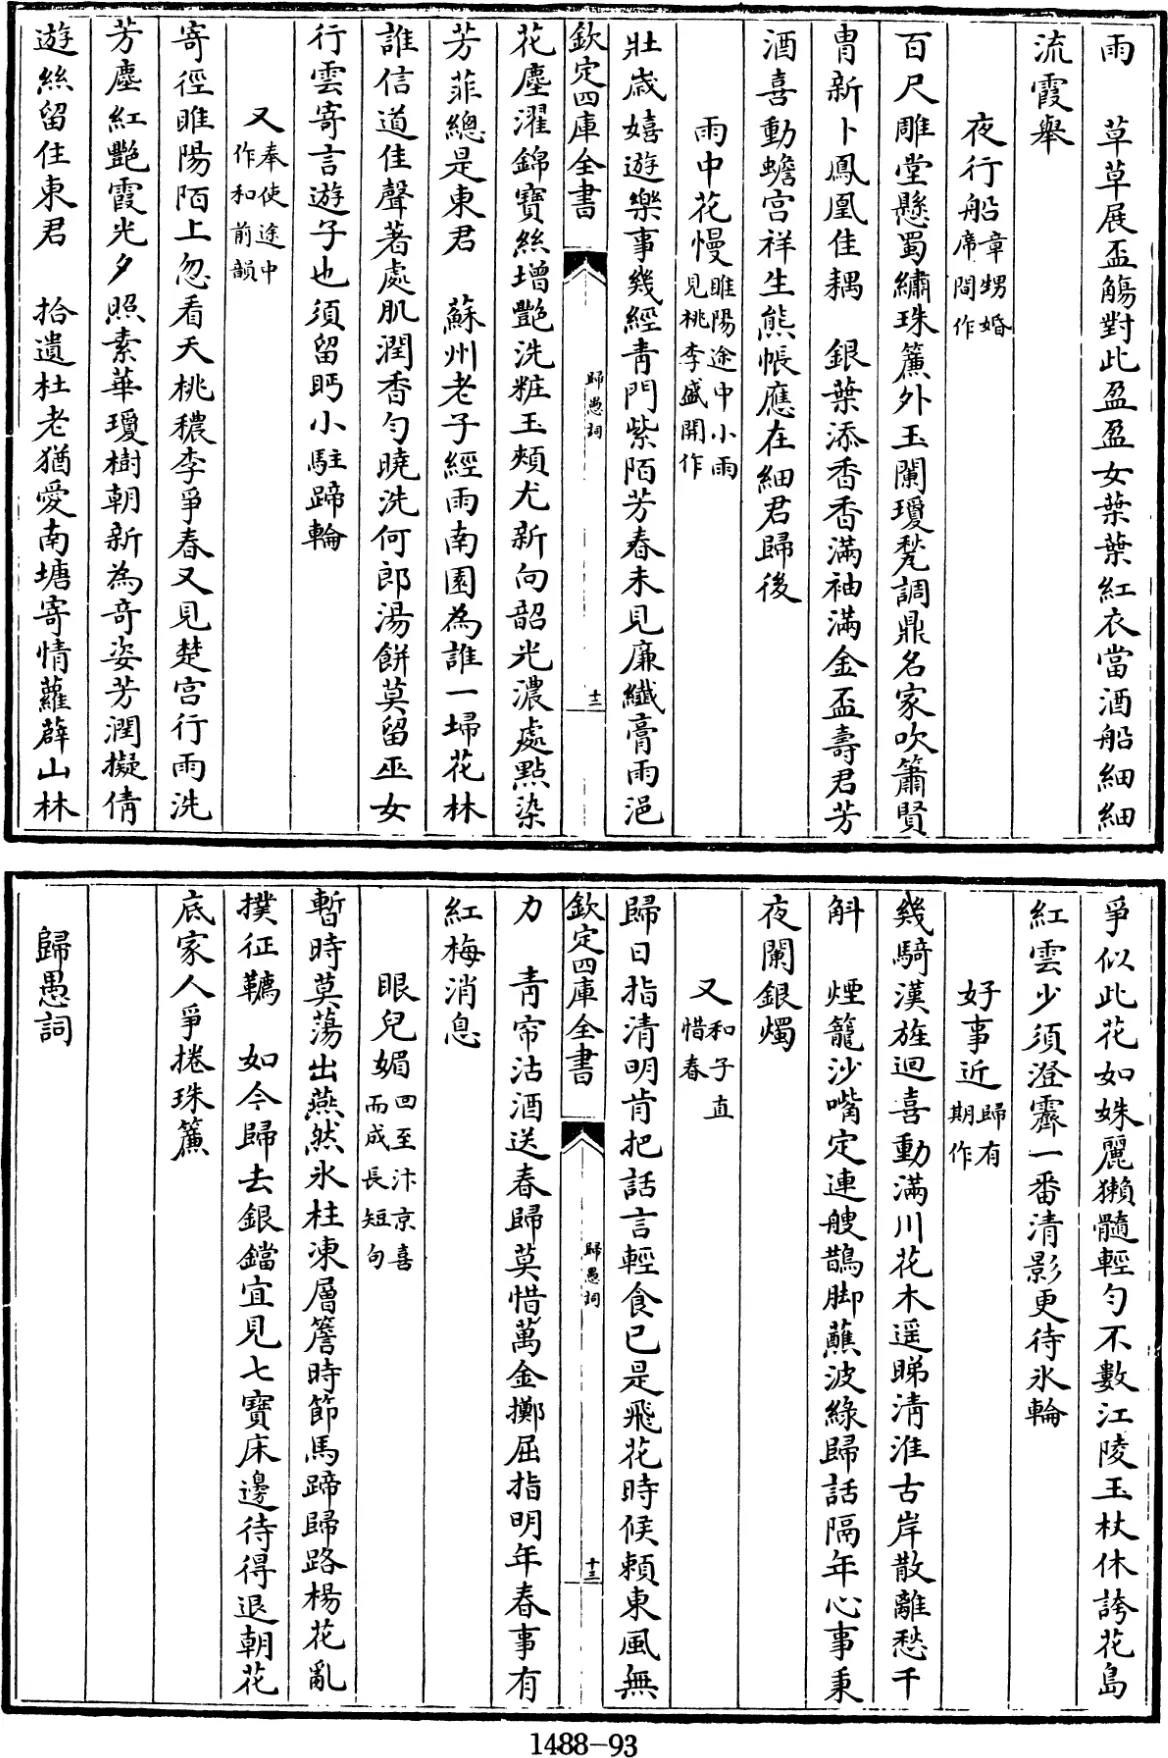 雨　草草展盃觴對此盈盈女葉葉紅衣當酒船細細
流霞舉
夜行船章甥婚席間作
百尺雕堂懸蜀繡珠簾外玉闌瓊甃調鼎名家吹簫賢
胄新卜鳳凰佳耦　銀葉添香香滿袖滿金盃壽君芳
酒喜動蟾宮祥生熊帳應在細君歸後
雨中花慢睢陽途中小雨見桃李盛開作
壯歲嬉遊樂事幾經青門紫陌芳春未見廉纖膏雨浥
欽定四庫全書
歸愚詞
十二
花塵濯錦寶絲增艷洗粧玉頰尤新向韶光濃處點染
芳菲總是東君　蘇州老子經雨南園為誰一埽花林
誰信道佳聲著處肌潤香勻曉洗何郎湯餅莫留巫女
行雲寄言遊子也須留眄小駐蹄輪
又奉使途中作和前韻
寄徑睢陽陌上忽看夭桃穠李爭春又見楚宮行雨洗
芳塵紅艷霞光夕照素華瓊樹朝新為奇姿芳潤擬倩
遊絲留住東君　拾遺杜老猶愛南塘寄情蘿薜山林
爭似此花如姝麗獺髓輕勻不數江陵玉杖休誇花島
紅雲少須澄霽一番清影更待氷輪
好事近歸有期作
幾騎漢旌迴喜動滿川花木遥睇清淮古岸散離愁千
斛　煙籠沙嘴定連艘鵲脚蘸波綠歸話隔年心事秉
夜闌銀燭
又和子直惜春
歸日指清明肯把話言輕食已是飛花時候賴東風無
欽定四庫全書
歸愚詞
十三
力　青帘沽酒送春歸莫惜萬金擲屈指明年春事有
紅梅消息
眼兒媚回至汴京喜而成長短句
暫時莫蕩出燕然氷柱凍層簷時節馬蹄歸路楊花亂
撲征鞽　如今歸去銀鐺宜見七寶床邊待得退朝花
底家人爭捲珠簾
歸愚詞
1488-93